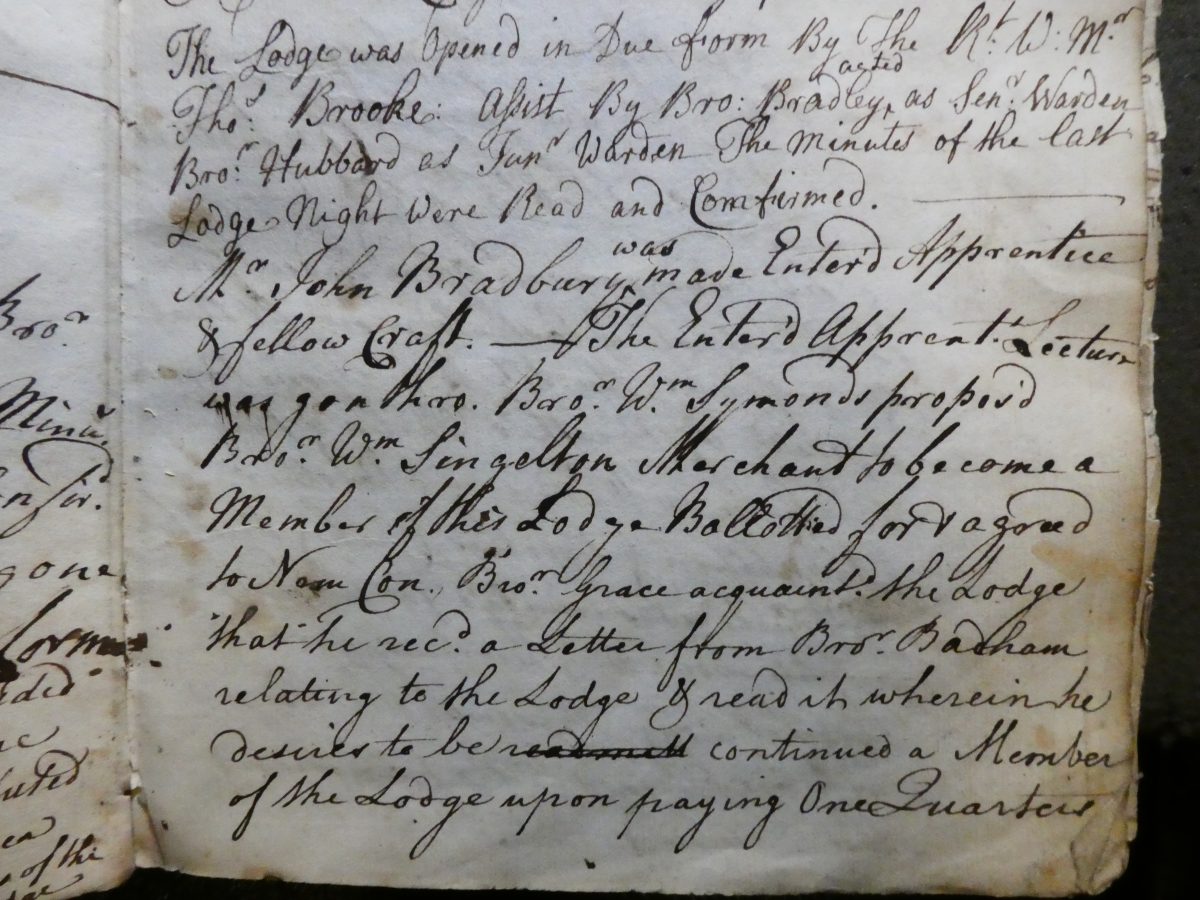 The Lodge was Opened in Due form By The Rt. W: Mr
Thos. Brooke: Assist By Bro: Bradley, acted as Senr. Warden
Bror. Hubbard as Junr Warden The minutes of the last
Lodge Night Were Read and Comfirmed.
Mr. John Bradbury was made Enter'd Apprentice
& fellow Craft. — The Enter'd Apprent. Lecture
was gon thro. Bror. Wm Symonds propos'd
Bror. Wm Singelton Merchant to become a
Member of this Lodge Ballottied for & agreed
to Nem Con., Bror. Grace acquaintd. the Lodge
that he recd. a Letter from Bror. Badham
relating to the Lodge & read it wherein he
desires to be continued a Member
of the Lodge upon paying One Quarters
Bror.
Minu
gone
of the